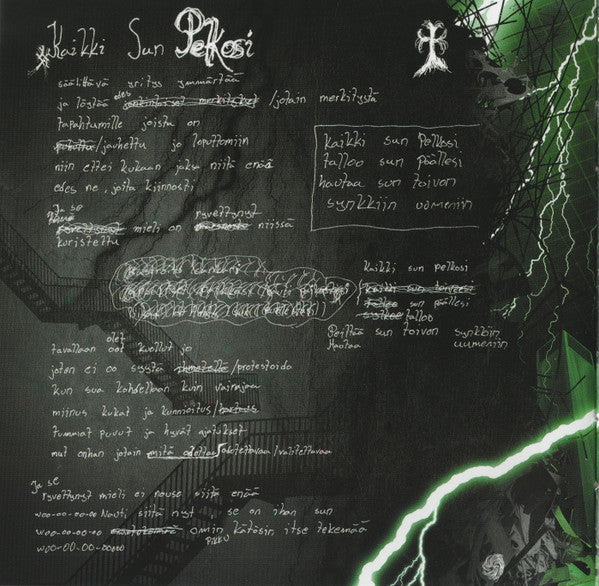 Kaikki Sun Pelkosi
säälittävä yritys ymmärtää
ja löytää edes /jotain merkitystä
tapahtumille joista on
puhuttu /jauhettu ja loputtomiin
niin ettei kukaan jaksa niitä enää
edes ne, joita kiinnosti
Ja se
mieli on ryvettynyt niissä
kuristettu
kaikki sun pelkosi
talloo sun päällesi
hautaa sun toivon
synkkiin uomeniin
Kaikki sun pelkosi
kaikki sun toiveesi
talloo sun päällesi
talloo
Peittää sun toivon synkkiin
Hautaa uumeniin
olet
tavallaan oot kuollut jo
joten ei oo syytä /protestoida
kun sua kohdellaan kuin vainajaa
miinus kukat ja kunnioitus/
tummat puvut ja hyvät ajatukset
mut onhan jotain mitä odottaa /odotettavaa/valitettavaa
Ja se
ryvettynyt mieli ei nouse siitä enää
woo-oo-oo-oo Nauti siitä nyt se on ihan sun
woo-oo-oo-oo omin kätösin itse tekemää
pikku
woo-oo-oo-ooooo